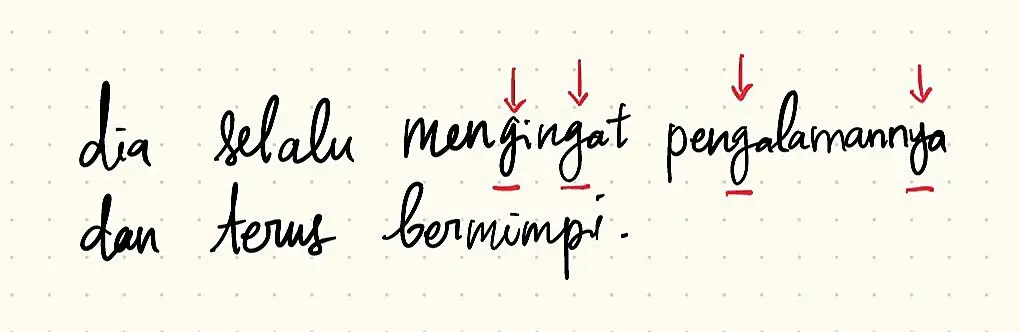 dia selalu mengingat pengalamannya
dan terus bermimpi.